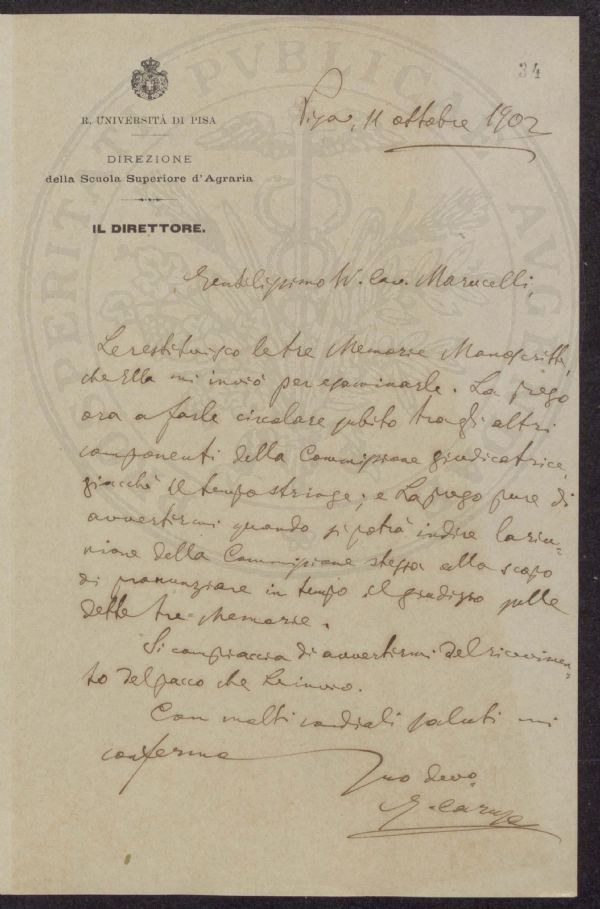 34
R. UNIVERSITÀ DI PISA
DIREZIONE
della Scuola Superiore d'Agraria
IL DIRETTORE.
Pisa, 11 ottobre 1902
Gentilissimo Cav. Marucelli,
Le restituisco le tre Memorie Manoscritte,
che Ella mi inviò per esaminarle. La prego
ora a farle circolare subito tra gli altri
componenti della Commissione giudicatrice,
giacchè il tempo stringe; e La prego pure di
avvertirmi quando si potrà indire la riu-
nione della Commissione stessa allo scopo
di pronunziare in tempo il giudizio sulle
dette tre Memorie.
Si compiaccia di avvertirmi del ricevimen-
to del pacco che Le invio.
Con molti cordiali saluti mi
confermo
Suo devo
G. Caruso